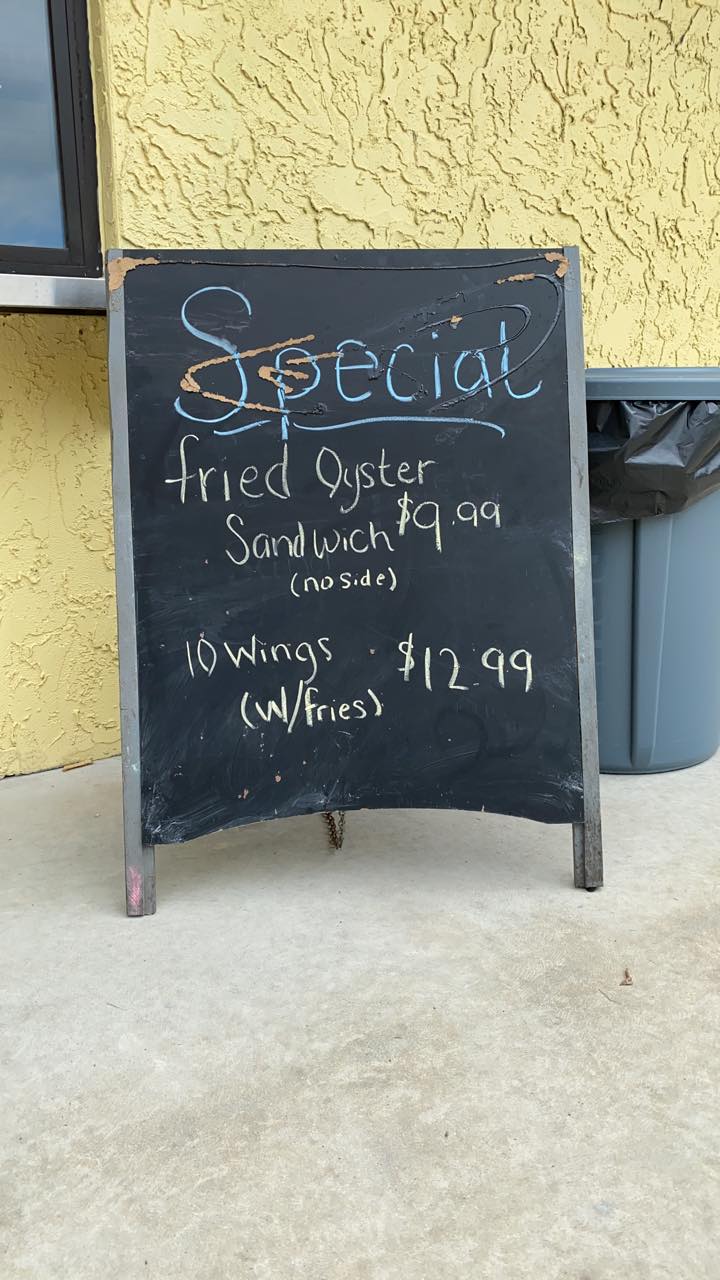 Special
fried Oyster
Sandwich $9.99
(no side)
10 Wings $12.99
(W/fries)